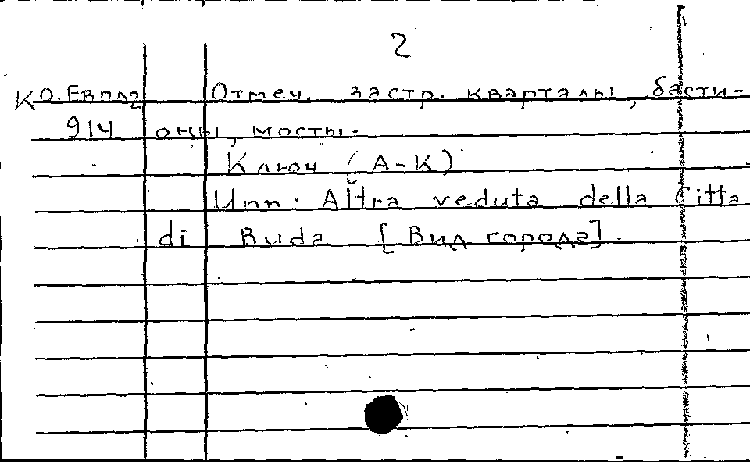 2
К О. Евпл2 Отмеч. застр. кварталы, басти-
914 оны, мосты.
Ключ (А-К)
Илл: Altra veduta della Citta
di Buda [Вид города].